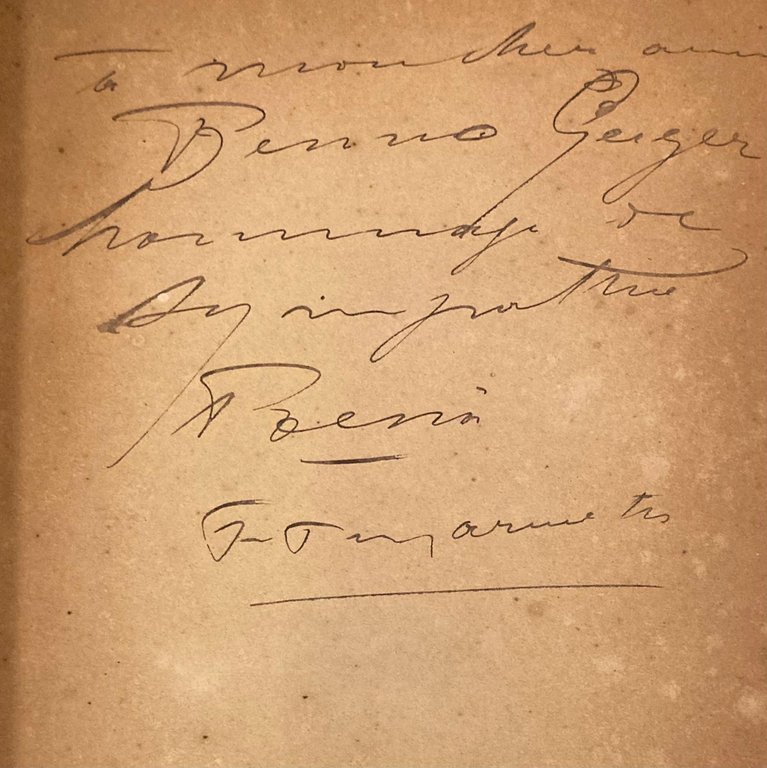 à mon cher ami
Benno Geiger
hommage de
sympathie
Poesia
F T Marinetti